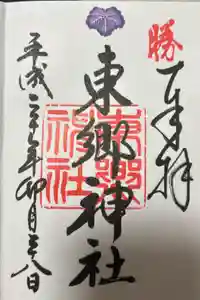 勝
奉拝
東郷神社
東郷神社
平成二十年卯月二十八日